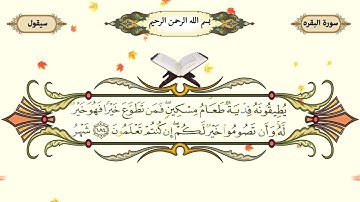 سورة البقره
بسم الله الرحمن الرحيم
سيقول
يُطِيقُونَهُۥ فِدْيَةٌ طَعَامُ مِسْكِينٍ ۖ فَمَن تَطَوَّعَ خَيْرًا فَهُوَ خَيْرٌ
لَّهُۥ ۚ وَأَن تَصُومُوا۟ خَيْرٌ لَّكُمْ ۖ إِن كُنتُمْ تَعْلَمُونَ ١٨٤ شَهْرُ